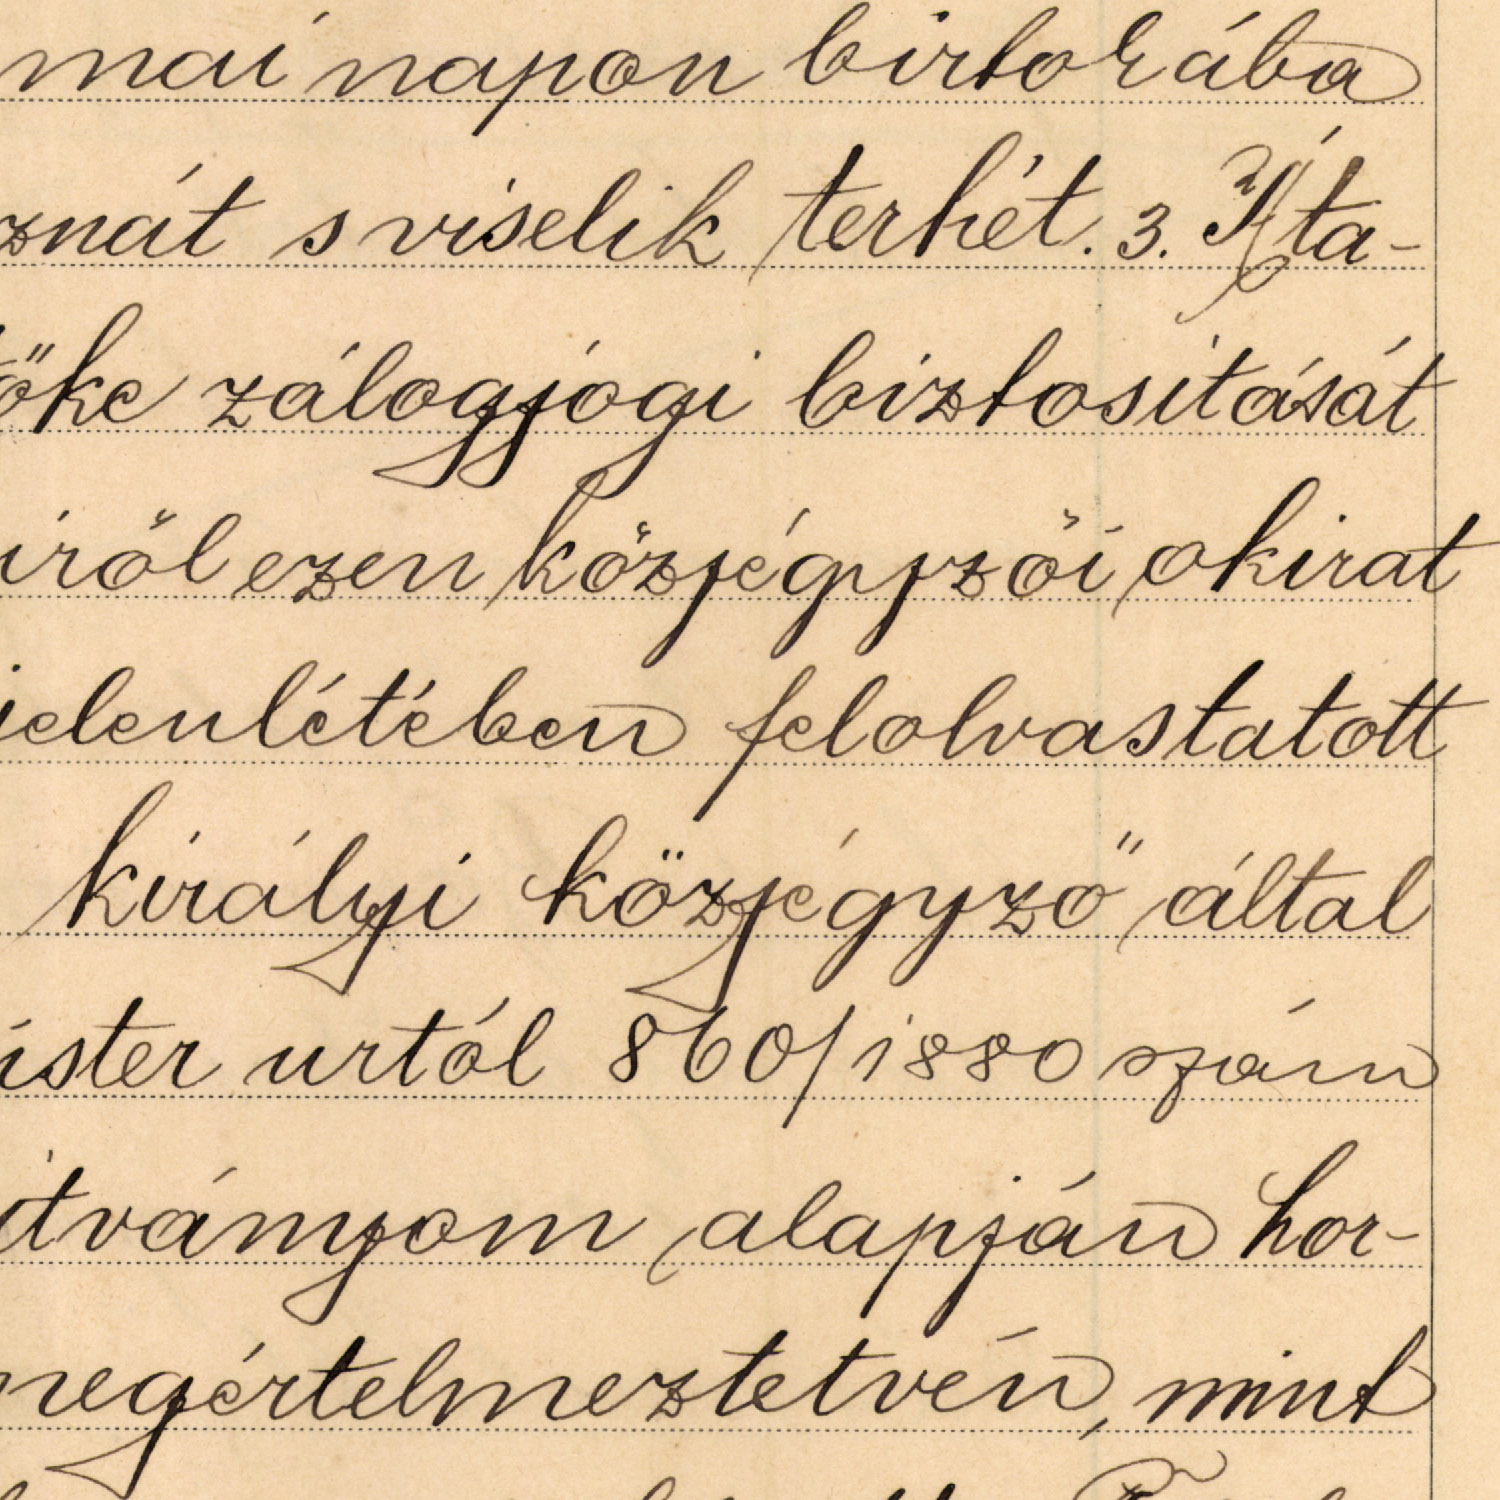 mai napon birtokába
znát s viselik terhét. 3. Áta-
őke zálogjogi biztositását
iről ezen közjégyzői okirat
jelenlétében felolvastatott
királyi közjégyző által
ister urtól 860/1880 szám
itványom alapján hor-
megértelmeztetvén, mint